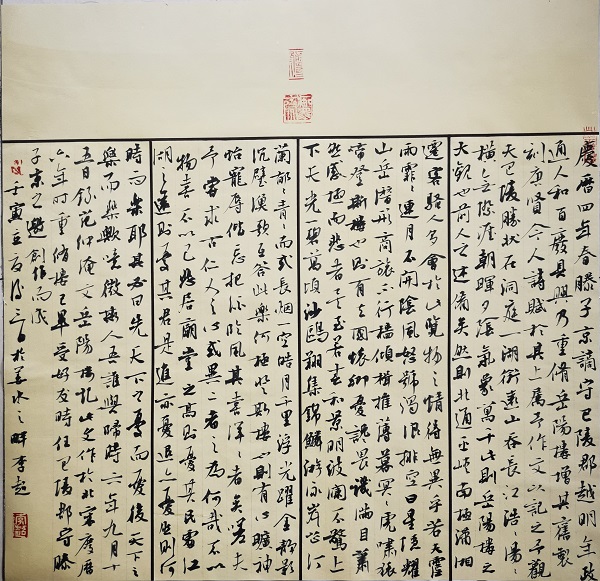 慶曆四年春滕子京謫守巴陵郡越明年政
通人和百廢具興乃重脩岳陽樓增其舊製
刻唐賢今人詩賦於其上屬予作文以記之予觀
夫巴陵勝狀在洞庭一湖銜遠山吞長江浩浩湯湯
橫無際涯朝暉夕陰氣象萬千此則岳陽樓之
大觀也前人之述備矣然則北通巫峽南極瀟湘
遷客騷人多會於此覽物之情得無異乎若夫霪
雨霏霏連月不開陰風怒號濁浪排空日星隱耀
山岳潛形商旅不行檣傾楫摧薄暮冥冥虎嘯猿
啼登斯樓也則有去國懷鄉憂讒畏譏滿目蕭
然感極而悲者矣至若春和景明波瀾不驚上
下天光一碧萬頃沙鷗翔集錦鱗游泳岸芷汀
蘭郁郁青青而或長煙一空皓月千里浮光躍金靜影
沉璧漁歌互答此樂何極登斯樓也則有心曠神
怡寵辱偕忘把酒臨風其喜洋洋者矣嗟夫
予嘗求古仁人之心或異二者之為何哉不以
物喜不以己悲居廟堂之高則憂其民處江
湖之遠則憂其君是進亦憂退亦憂然則何
時而樂耶其必曰先天下之憂而憂後天下之
樂而樂歟噫微斯人吾誰與歸時六年九月十
五日錄范仲淹文岳陽樓記此文作於北宋慶曆
六年時重脩樓已畢受好友時任巴陵郡守滕
子京之邀創作而成
壬寅立夏後三日於姜水之畔李起